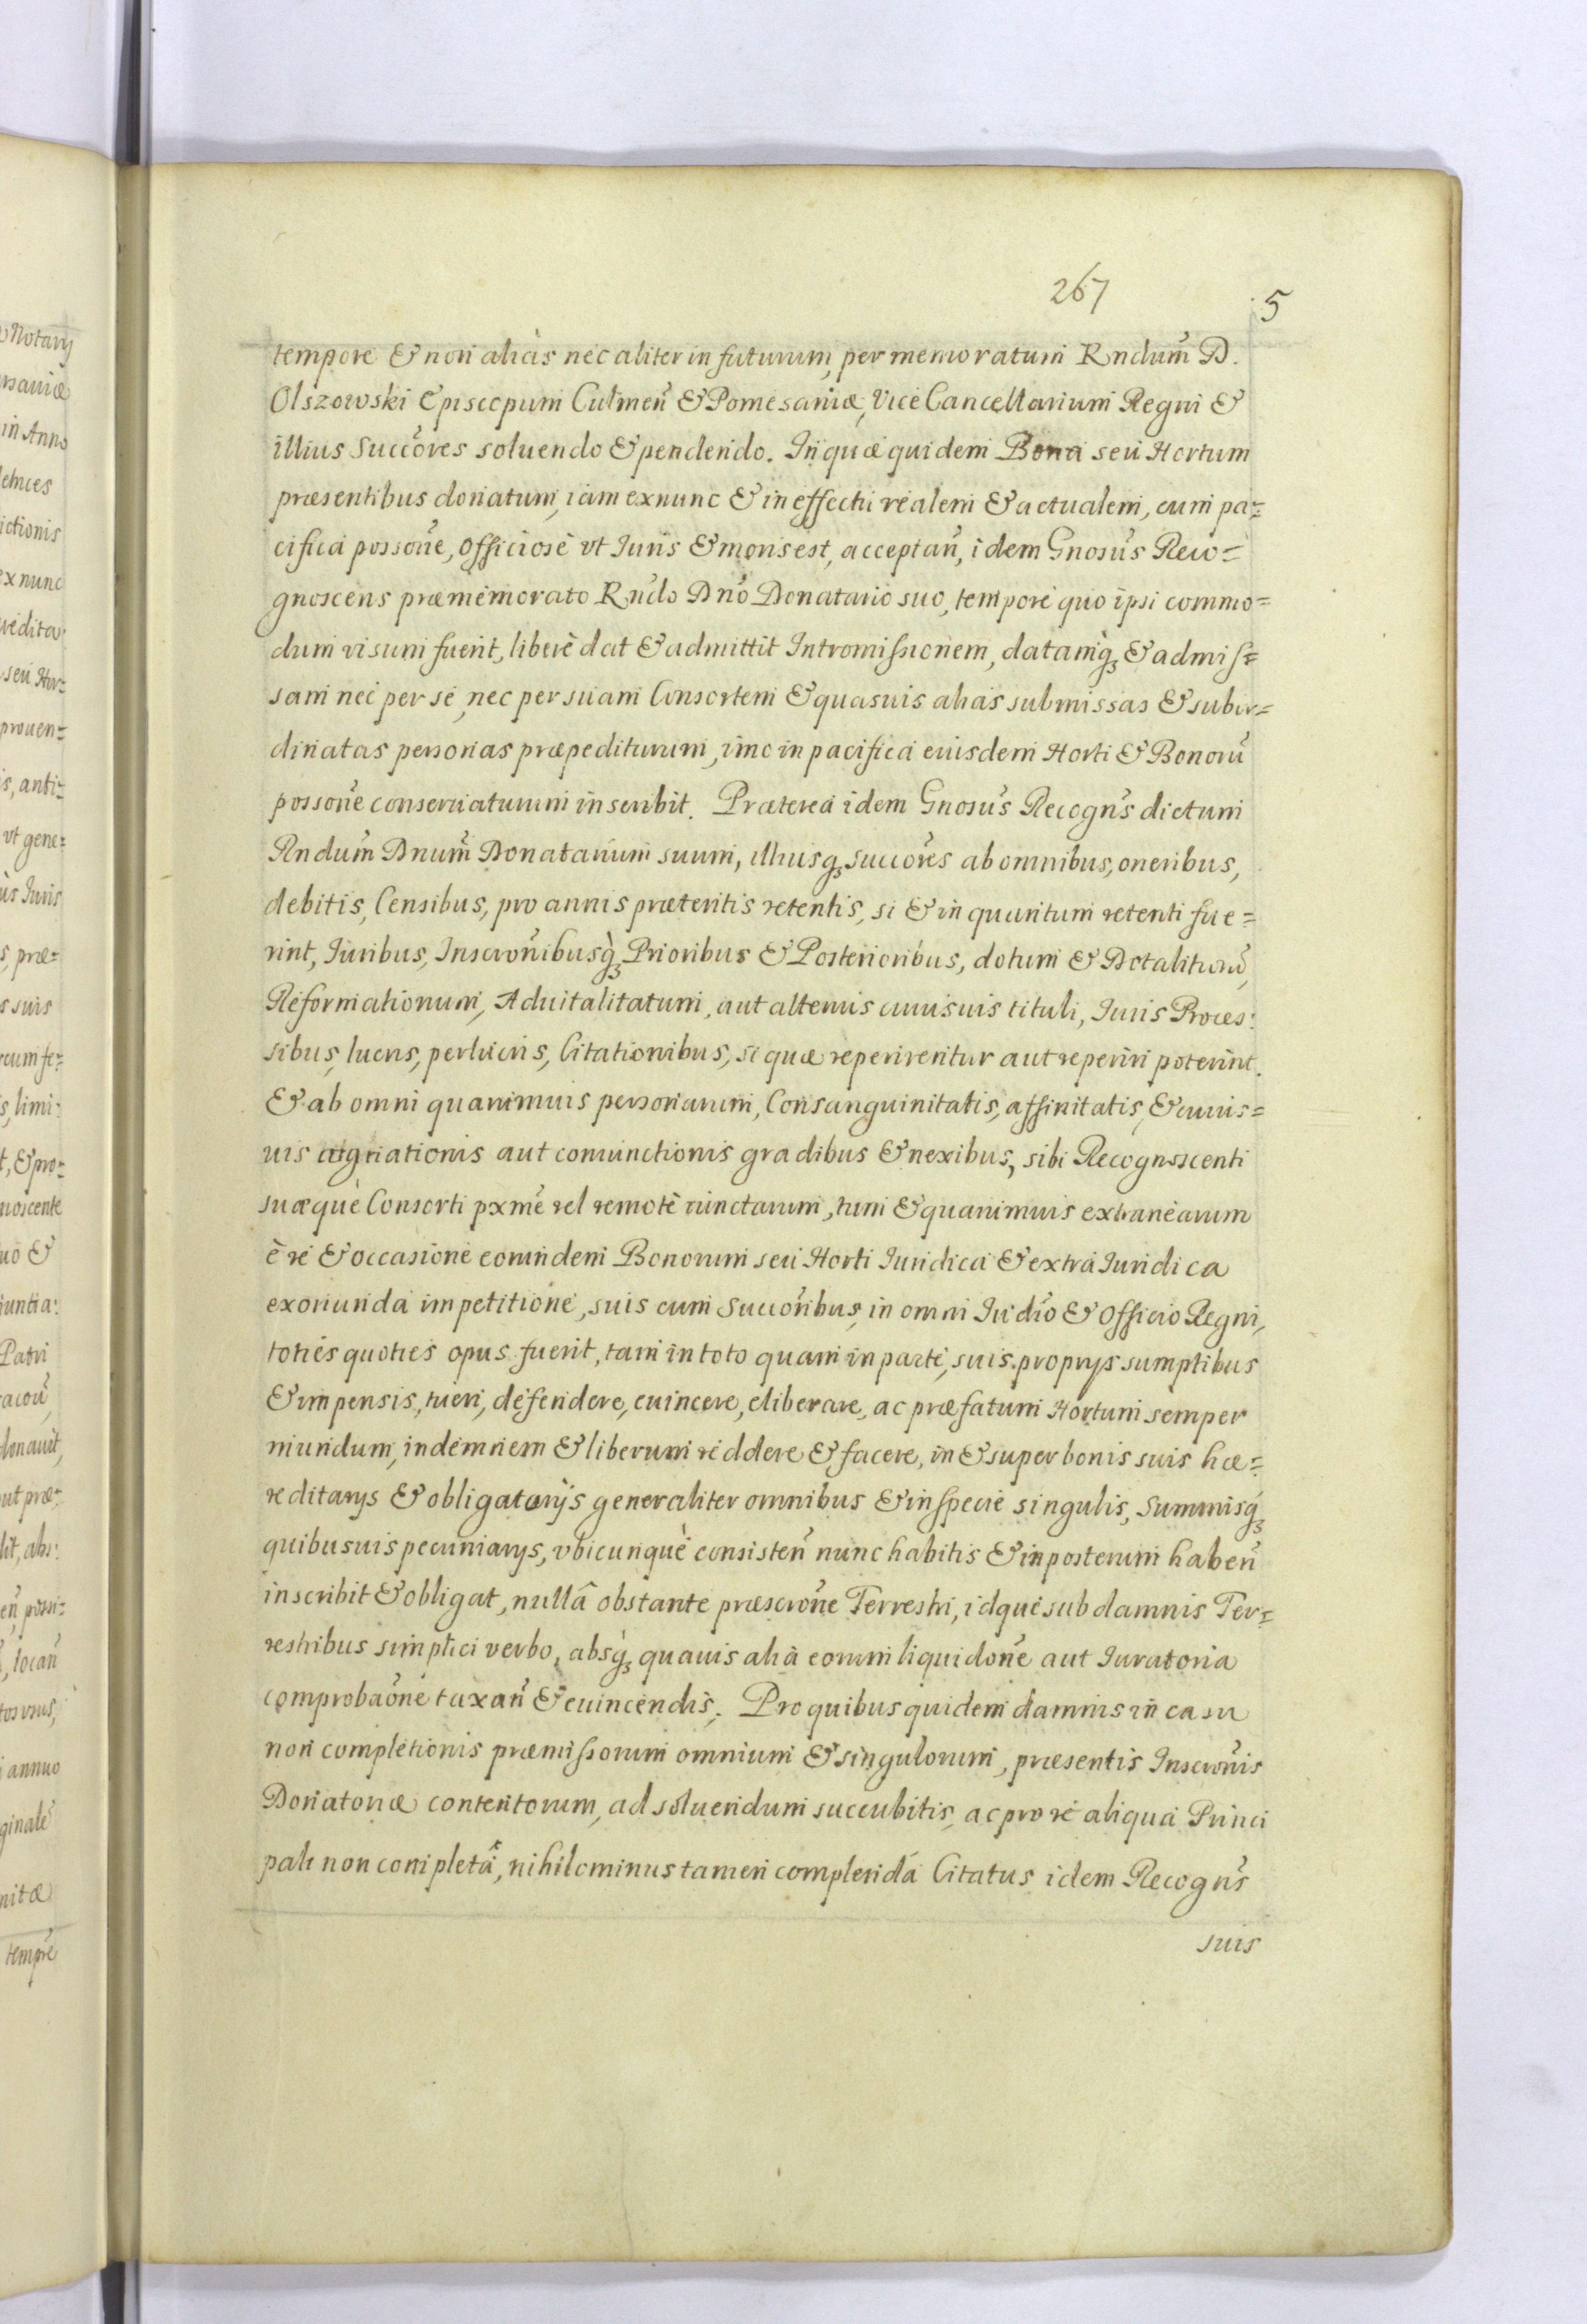 267
5
tempore & non aliàs nec aliter in futurum, per memoratum Rndum̃ D.
Olszowski Episcopum Culmen̄ & Pomesaniæ, Vice Cancellarium Regni &
illius Succōres soluendo & pendendo. In quæ quidem Bona seu Hortum
præsentibus donatum, iam exnunc & in effectu realem & actualem, cum pa=
cifica possōne, officiosè vt Iuris & moris est, acceptan̄, idem Gnosus̄ Reco=
gnoscens præmemorato Rn̄do Dnō Donatario suo, tempore quo ipsi commo=
dum visum fuerit, liberè dat & admittit Intromissionem, datamq̀ꝫ & admis=
sam nec per se, nec per suam Consortem & quasuis alias submissas & subor=
dinatas personas præpediturum, imo in pacifica eiusdem Horti & Bonorū
possōne conseruaturum inscribit. Præterea idem Gnosus̄ Recogn̄s dictum
Rndum̃ Dnum̃ Donatarium suum, illiusqꝫ succōres ab omnibus, oneribus,
debitis, Censibus, pro annis præteritis retentis, si & in quantum retenti fue=
rint, Iuribus, Inscrōnibusq̀ꝫ Prioribus & Posterioribus, dotum & Dotalitiorū,
Reformationum, Aduitalitatum, aut alterius cuiusuis tituli, Iuris Proces:
sibus, lucris, perlucris, Citationibus, si quæ reperirentur aut reperiri poterint.
& ab omni quarumuis personarum, Consanguinitatis, affinitatis, & cuius=
uis cognationis aut coniunctionis gradibus & nexibus, sibi Recognoscenti
suæquè Consorti pxmē vel remotè iunctarum, tum & quarumuis extranearum
è re & occasione eorundem Bonorum seu Horti Iuridica & extra Iuridica
exoriunda impetitione, suis cum Succōribus, in omni Iud̄io & Officio Regni,
toties quoties opus fuerit, tam in toto quam in parte, suis proprys sumptibus
& impensis, tueri, defendere, euincere, eliberare, ac præfatum Hortum semper
mundum, indemnem & liberum reddere & facere, in & super bonis suis hæ=
reditarys & obligatorys generaliter omnibus & in specie singulis, Summisq́ꝫ
quibusuis pecuniarys, vbicunquè consisten̄ nunc habitis & in posterum haben̄
inscribit & obligat, nullâ obstante præscrōne Terrestri, idque sub damnis Ter=
restribus simplici verbo, absq̀ꝫ quauis alia eorum liquidōne aut Iuratoria
comprobaōne taxan̄ & euincendis. Pro quibus quidem damnis in casu
non completionis præmissorum omnium & singulorum, præsentis Inscrōnis
Donatoriæ contentorum, ad soluendum succubitis, ac pro re aliqua Princi
pali non completa, nihilominus tamen complenda Citatus idem Recogn̄s
suis